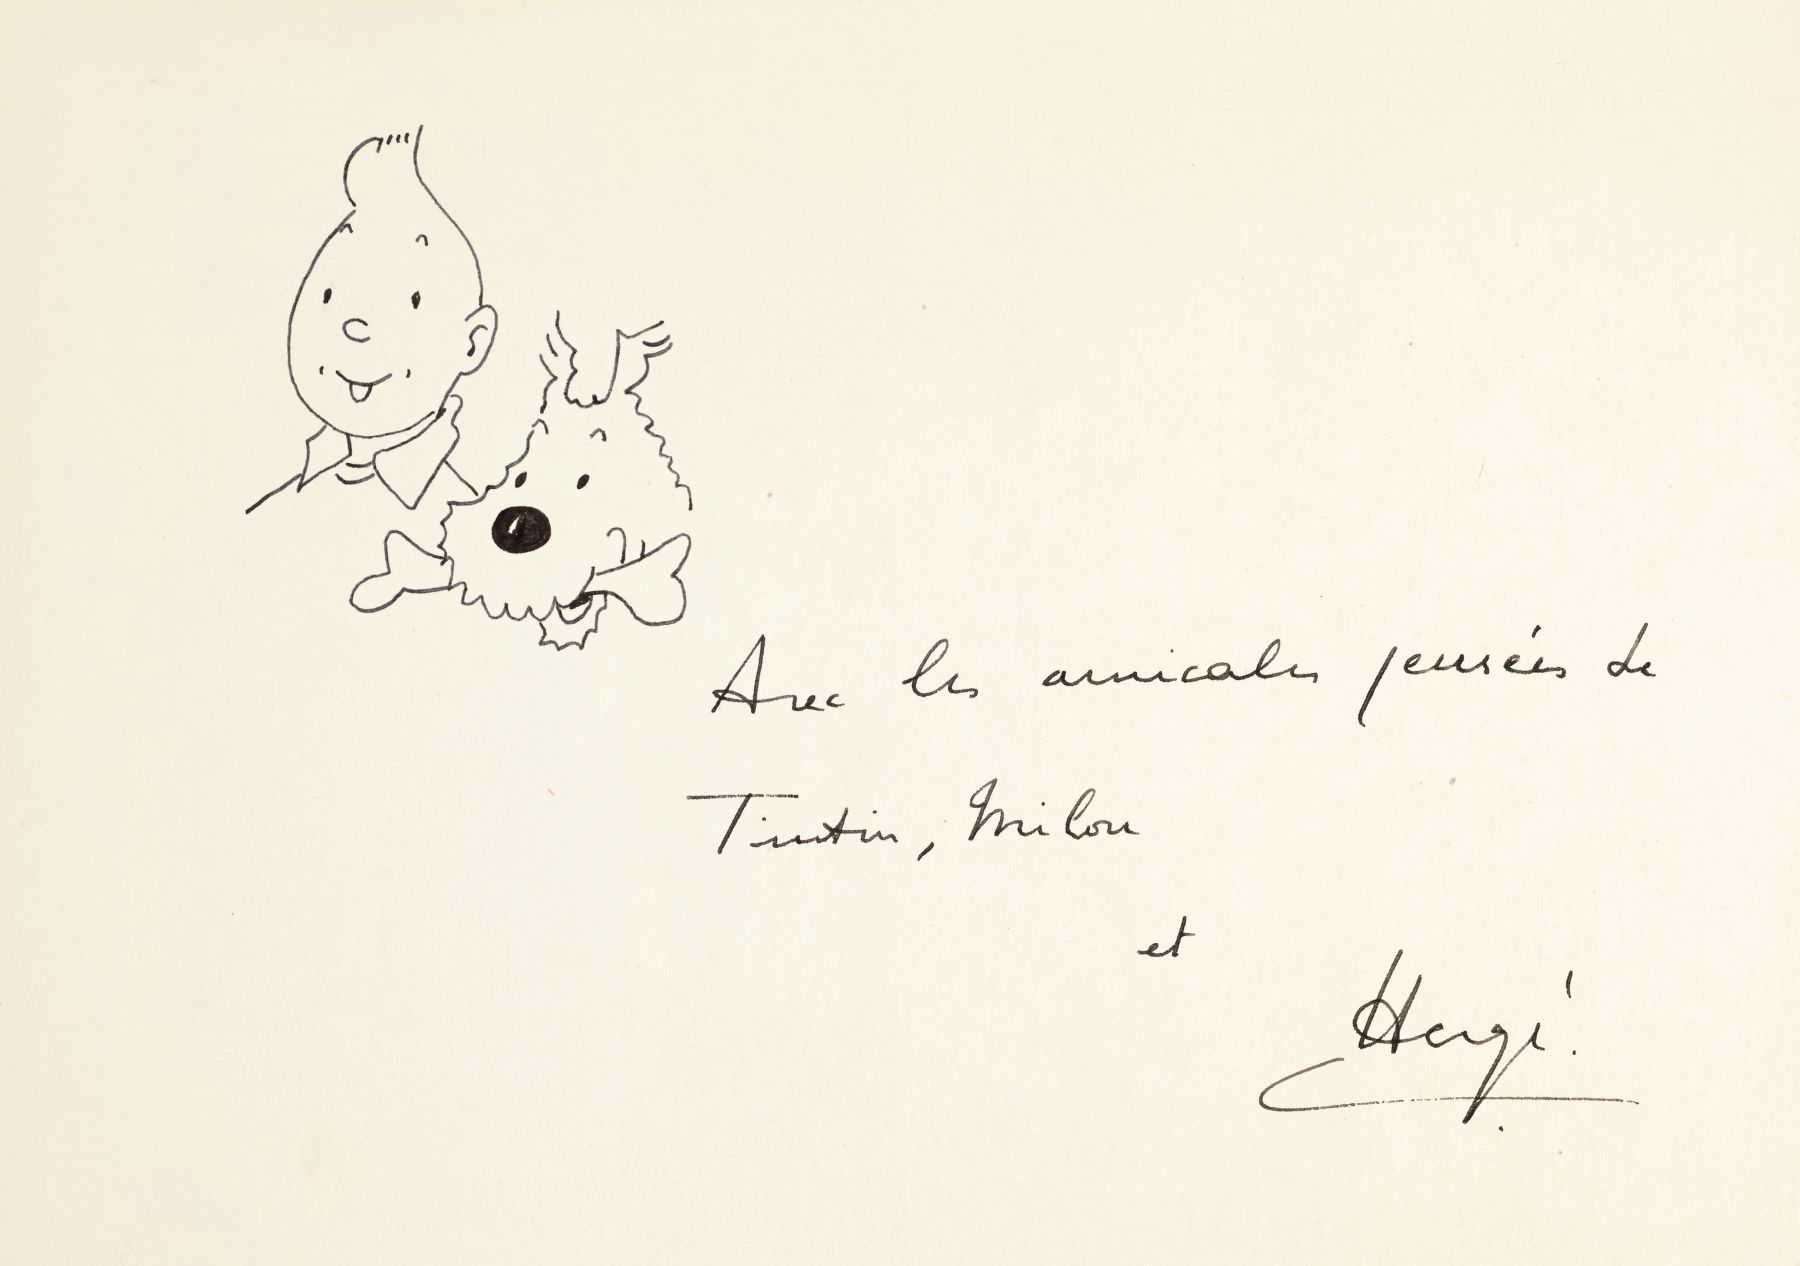 Avec les amicales pensées de
Tintin, Milou
et
Hergé.